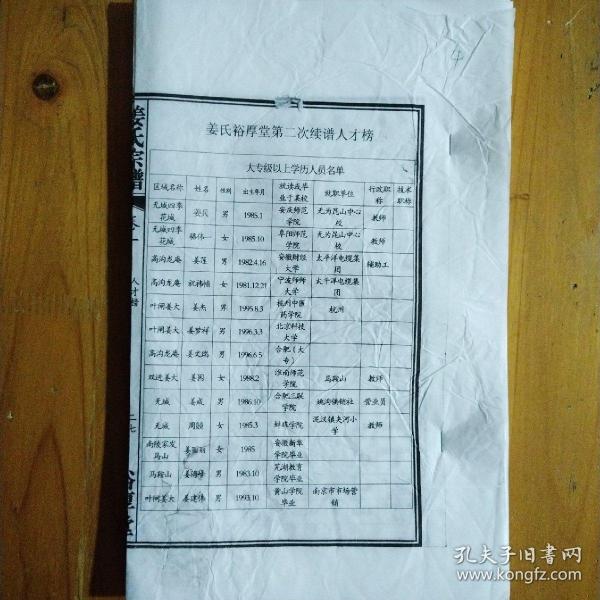 姜氏宗譜
卷一
人才榜
二七
裕厚堂
姜氏裕厚堂第二次续谱人才榜
大专级以上学历人员名单
区域名称 姓名 性别 出生年月 就读或毕业于某校 就职单位 行政职称 技术职称
无城四季花城 男 1985.1 安庆师范学院 无为昆山中心校 教师
无城四季花城 女 1985.10 阜阳师范学院 无为昆山中心校 教师
高沟龙庵 姜莲 男 1982.4.16 安徽财经大学 太平洋电缆集团 辅助工
高沟龙庵 女 1981.12.21 宁波师师大学 太平洋电缆集团
叶闸姜大 姜杰 男 1995.8.3 杭州中医药学院 杭州
叶闸姜大 姜梦祥 男 1996.3.3 北京科技大学
高沟龙庵 姜文瑞 男 1996.6.5 合肥(大专)
双进姜大 姜园 女 1988.2 淮南师范学院 马鞍山 教师
无城 姜成 男 1986.10 合肥三联学院 姚沟供销社 营业员
无城 周颐 女 1985.3 蚌埠学院 泥汊镇夹河小学 教师
南陵家发马山 女 1985 安徽新华学院毕业
马鞍山 姜海峰 男 1983.10 芜湖教育学院毕业
叶闸姜大 姜建伟 男 1993.10 黄山学院毕业 南京市市场营销
孔夫子旧书网
www.kongfz.com